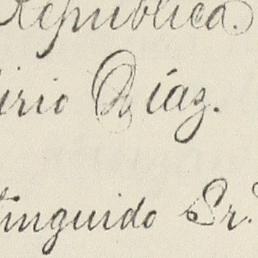 República.
irio Díaz.
tinguido Sr.